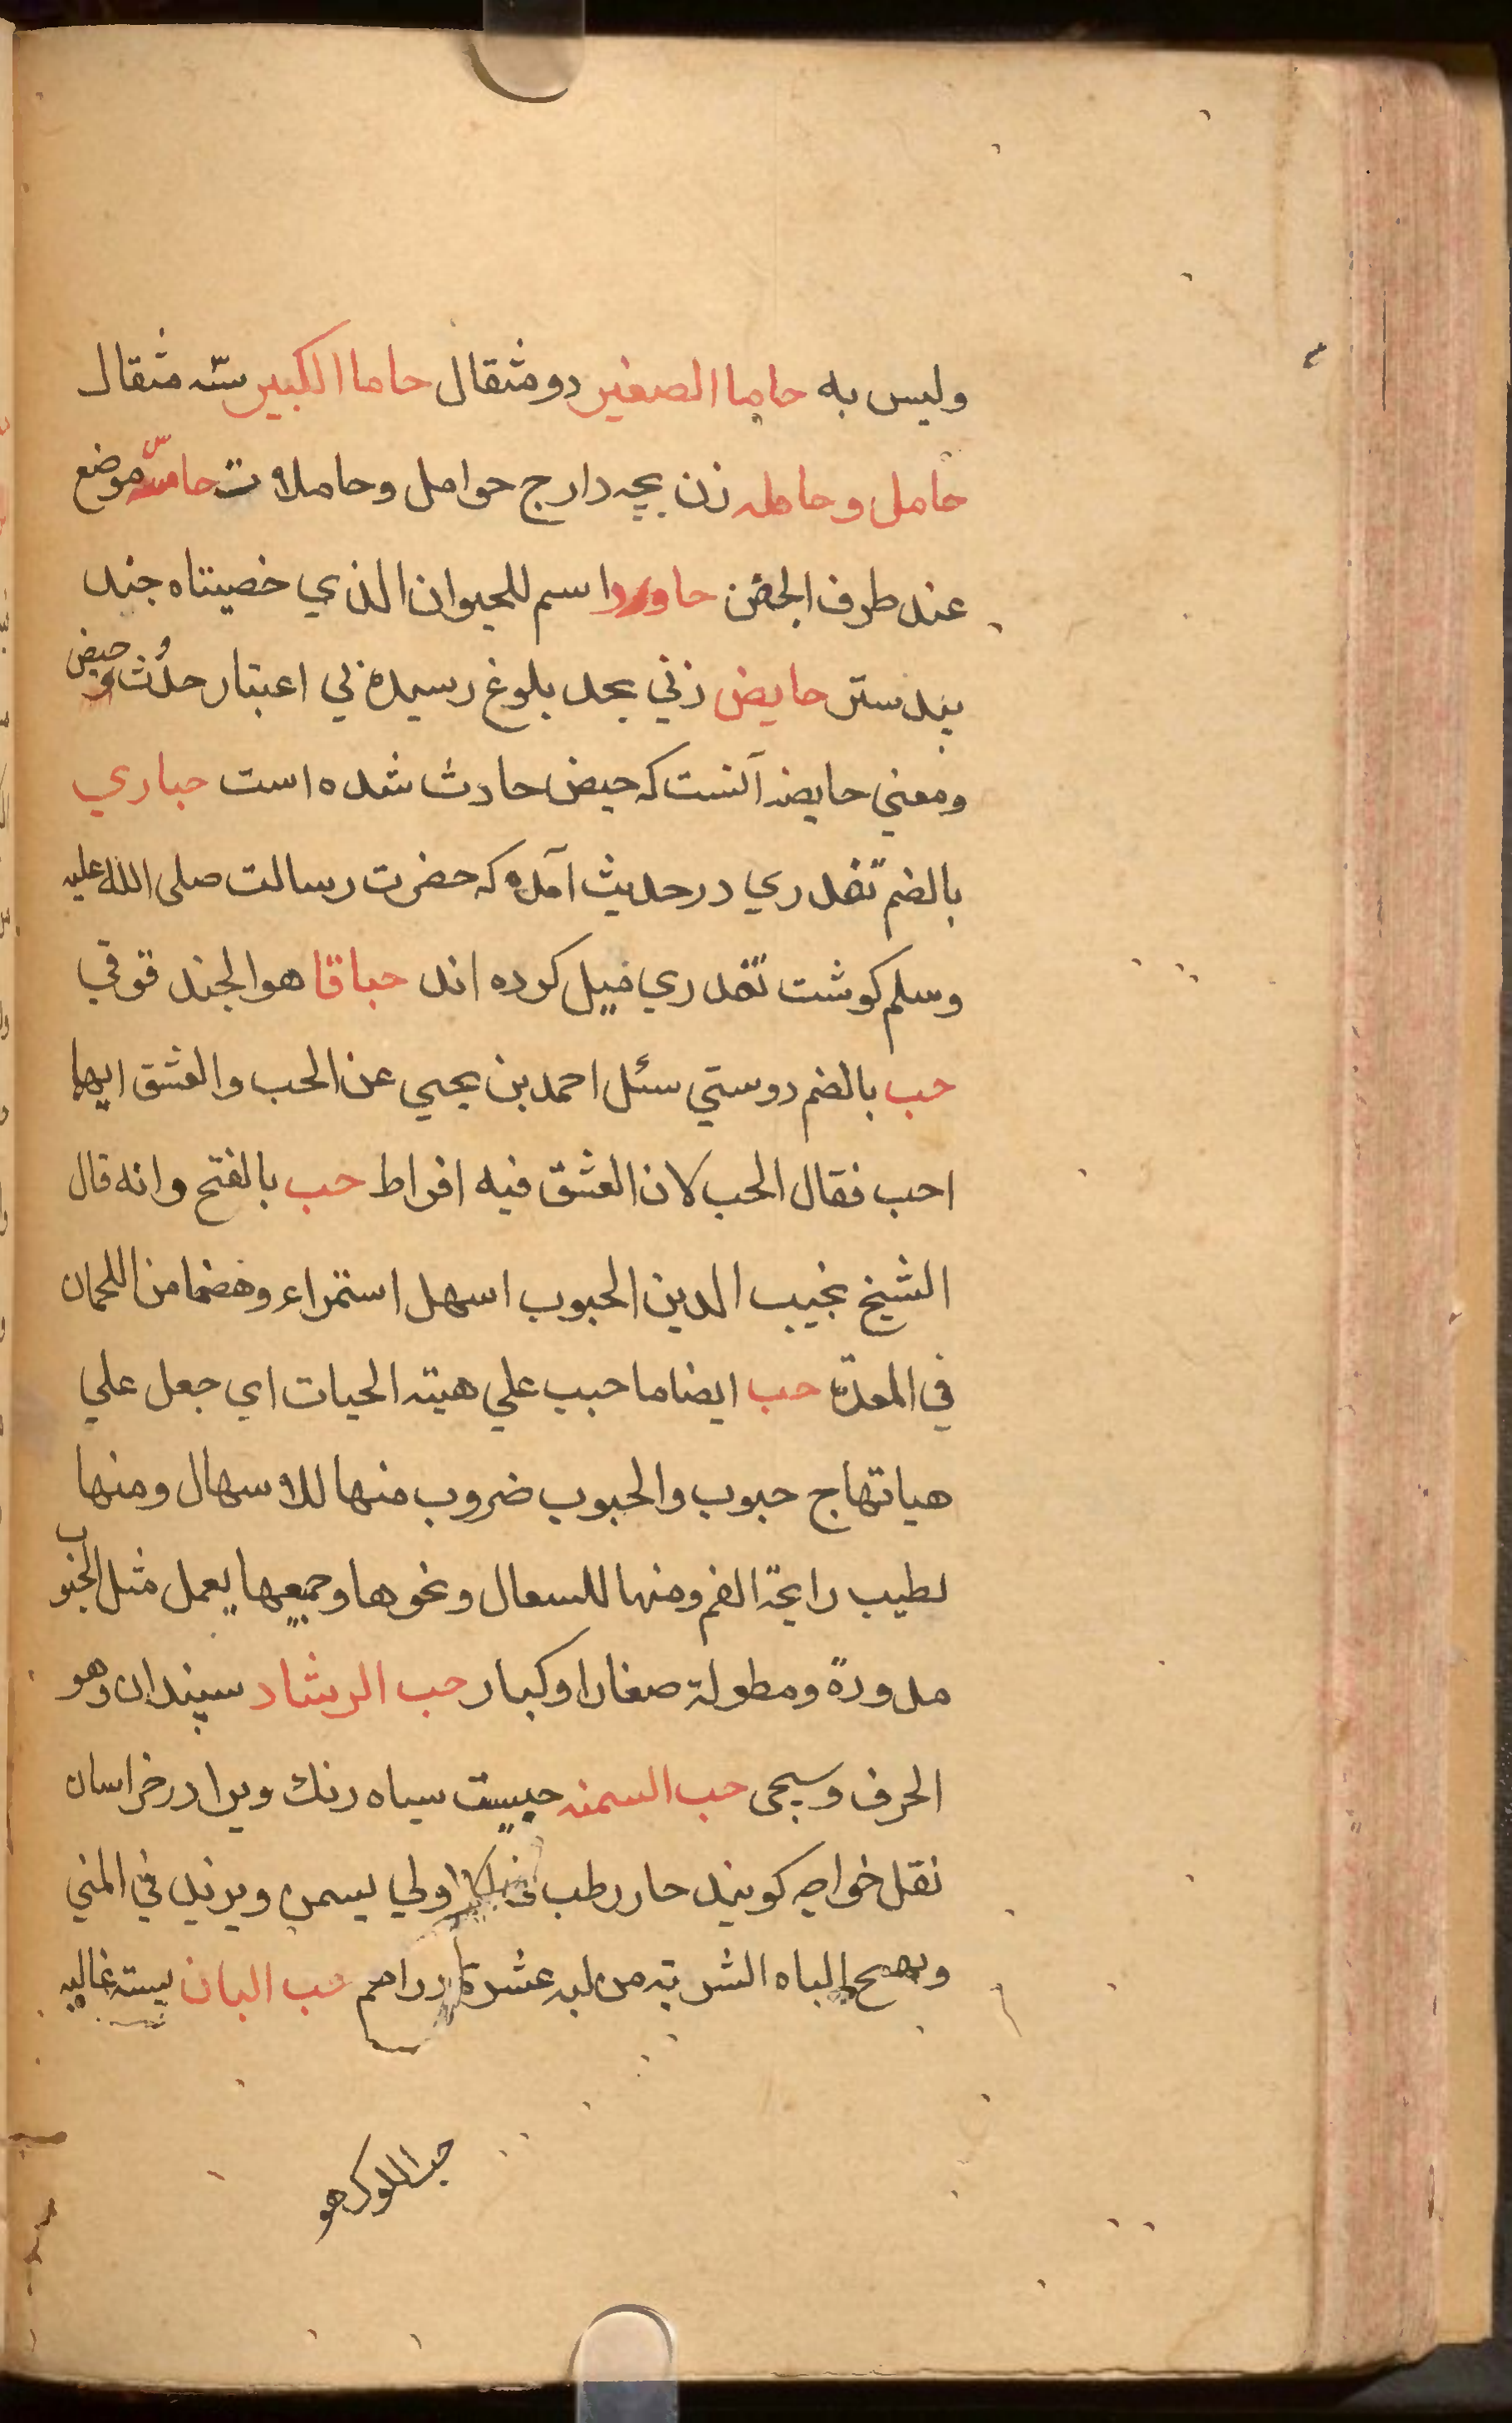 وليس به حاما الصغير دو مثقال حاما الكبير سّه مثقال
حامل و حامله زن بچه دار ج حوامل وحاملات حاسّه موضع
عند طرف الجفن حاورد اسم للحيوان الذي خصيتاه جند
بيدستر حايض زني بحد بلوغ رسيده بي اعتبار حدُث حيض
ومعني حايضه آنست كه حيض حادث شده است حباري
بالضم تغدري در حديث آمده كه حضرت رسالت صلى الله عليه
وسلم كوشت تغدري ميل كرده اند حباقا هو الجند قوقي
حب بالضم دوستي سئل احمد بن يحيي عن الحب والعشق ايهما
احب فقال الحب لان العشق فيه افراط حب بالفتح دانه قال
الشيخ نجيب الدين الحبوب اسهل استمراء وهضما من اللحمان
في المعدّة حب ايضا ما حبب علي هيته الحيات اي جعل علي
هياتها ج حبوب والحبوب ضروب منها للاسهال ومنها
لطيب رايحة الفم ومنها للسعال ونحوها وجميعها يعمل مثل الحبوب
مدورة ومطولة صغارا وكبار حب الرشاد سپندان وهو
الحرف وسيجى حب السمنه حبيست سياه رنك ويرا در خراسان
نقل خواجه كويند حار رطب في اولي يسمن ويزيد في المني
ويهيج الباه الشربته من لبه عشرة دراهم حب البان پسته غاليه
حب الملوك هو